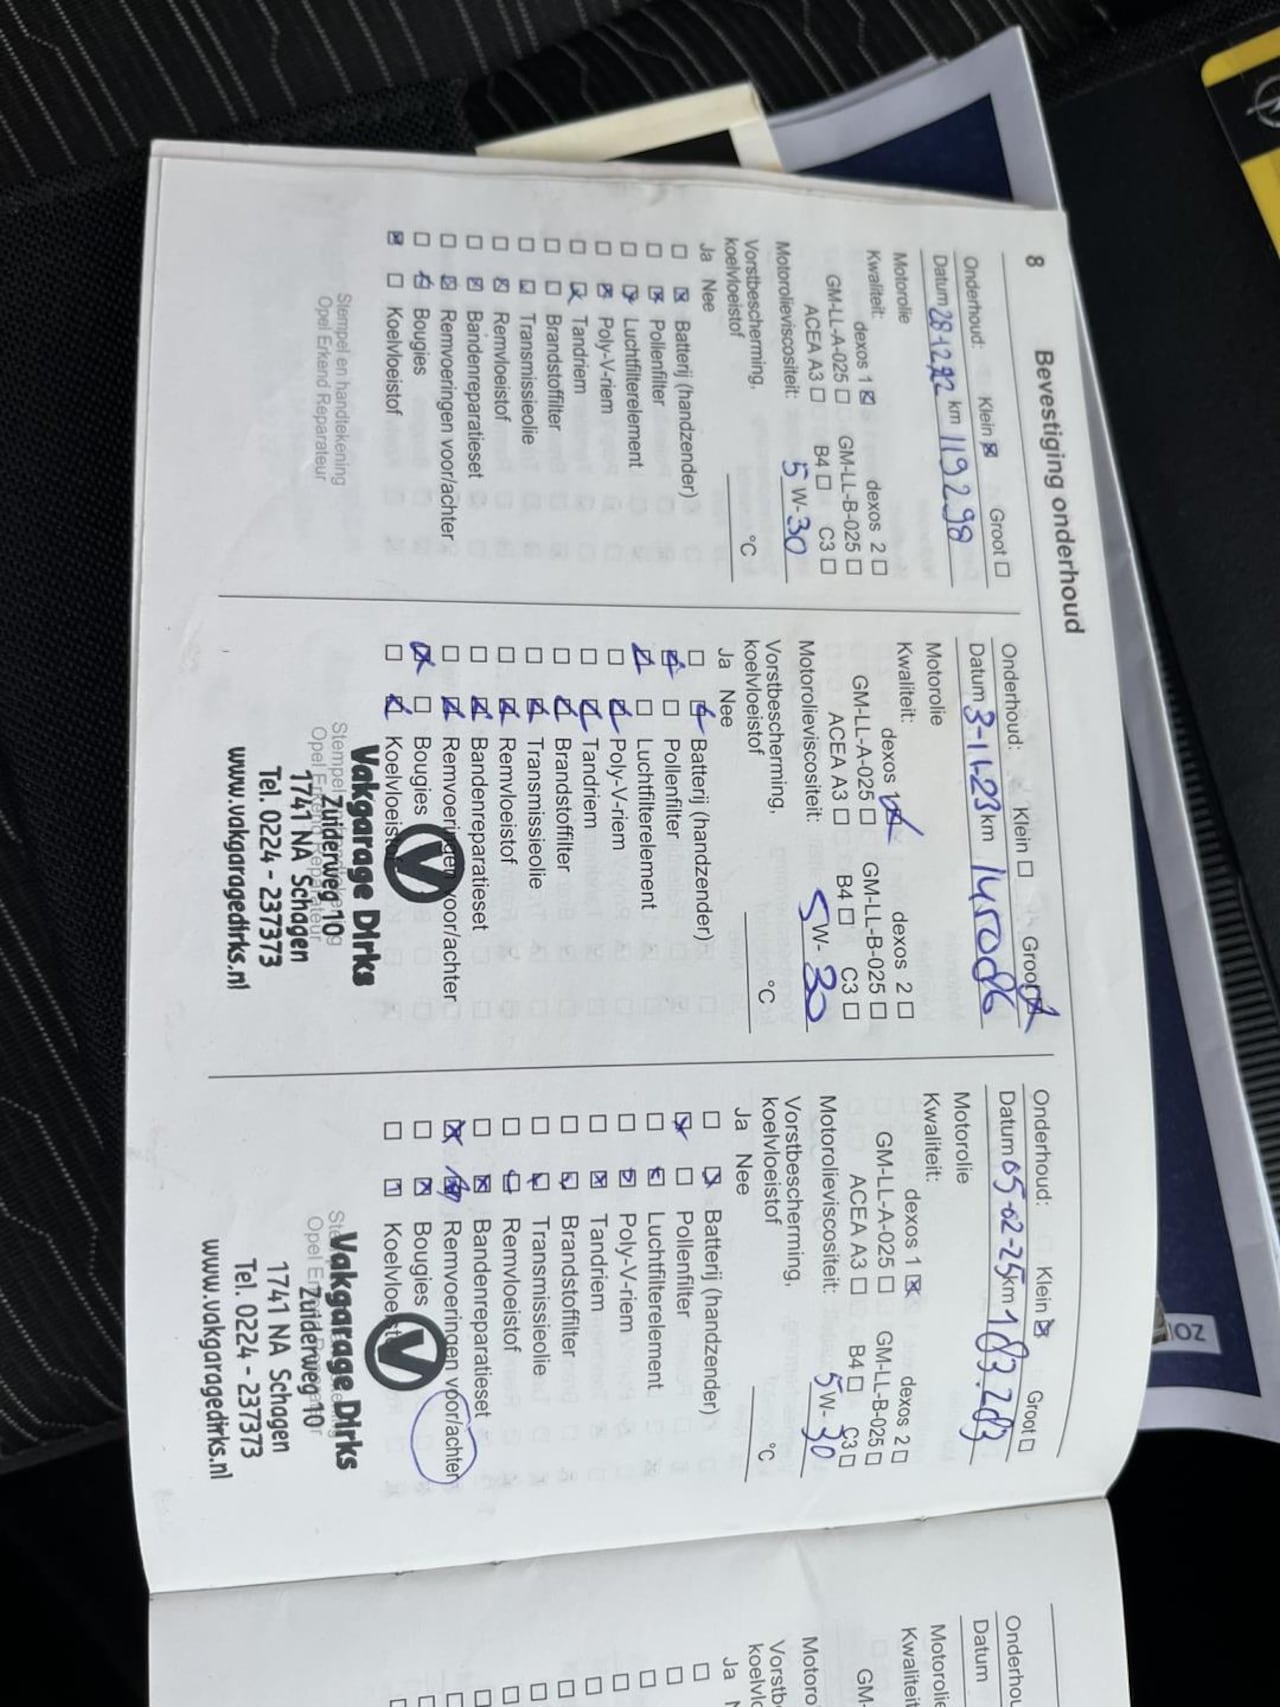 8
Bevestiging onderhoud
Onderhoud: Klein ☒ Groot ☐
Datum 28-12-22 km 119298
Motorolie
Kwaliteit: dexos 1 ☒ dexos 2 ☐
GM-LL-A-025 ☐ GM-LL-B-025 ☐
ACEA A3 ☐ B4 ☐ C3 ☐
Motorolieviscositeit: 5 W-30
Vorstbescherming,
koelvloeistof °C
Ja Nee
☐ ☒ Batterij (handzender)
☐ ☒ Pollenfilter
☐ ☒ Luchtfilterelement
☐ ☒ Poly-V-riem
☐ ☒ Tandriem
☐ ☐ Brandstoffilter
☐ ☒ Transmissieolie
☐ ☒ Remvloeistof
☐ ☒ Bandenreparatieset
☐ ☒ Remvoeringen voor/achter
☐ ☒ Bougies
☒ ☐ Koelvloeistof
Stempel en handtekening
Opel Erkend Reparateur
Onderhoud: Klein ☐ Groot ☒
Datum 3-11-23 km
Motorolie
Kwaliteit: dexos 1 ☒ dexos 2 ☐
GM-LL-A-025 ☐ GM-LL-B-025 ☐
ACEA A3 ☐ B4 ☐ C3 ☐
Motorolieviscositeit: 5 W-30
Vorstbescherming,
koelvloeistof °C
Ja Nee
☐ ☒ Batterij (handzender)
☒ ☐ Pollenfilter
☒ ☐ Luchtfilterelement
☐ ☒ Poly-V-riem
☐ ☒ Tandriem
☐ ☒ Brandstoffilter
☐ ☒ Transmissieolie
☐ ☒ Remvloeistof
☐ ☒ Bandenreparatieset
☐ ☒ Remvoeringen voor/achter
☒ ☐ Bougies
☐ ☒ Koelvloeistof
Stempel en handtekening
Opel Erkend Reparateur
V
Vakgarage Dirks
Zuiderweg 10
1741 NA Schagen
Tel. 0224 - 237373
www.vakgaragedirks.nl
Onderhoud: Klein ☒ Groot ☐
Datum 05-02-25 km 183.283
Motorolie
Kwaliteit: dexos 1 ☒ dexos 2 ☐
GM-LL-A-025 ☐ GM-LL-B-025 ☐
ACEA A3 ☐ B4 ☐ C3 ☐
Motorolieviscositeit: 5 W-30
Vorstbescherming,
koelvloeistof °C
Ja Nee
☐ ☒ Batterij (handzender)
☒ ☐ Pollenfilter
☐ ☒ Luchtfilterelement
☐ ☒ Poly-V-riem
☐ ☒ Tandriem
☐ ☒ Brandstoffilter
☐ ☒ Transmissieolie
☐ ☒ Remvloeistof
☐ ☒ Bandenreparatieset
☒ ☒ Remvoeringen voor/achter
☐ ☒ Bougies
☐ ☒ Koelvloeist
Opel
V
Vakgarage Dirks
Zuiderweg 10
1741 NA Schagen
Tel. 0224 - 237373
www.vakgaragedirks.nl
Onderho
Datum
Motorolie
Kwaliteit
GM-
Motoro
Vorstb
koelvlo
Ja